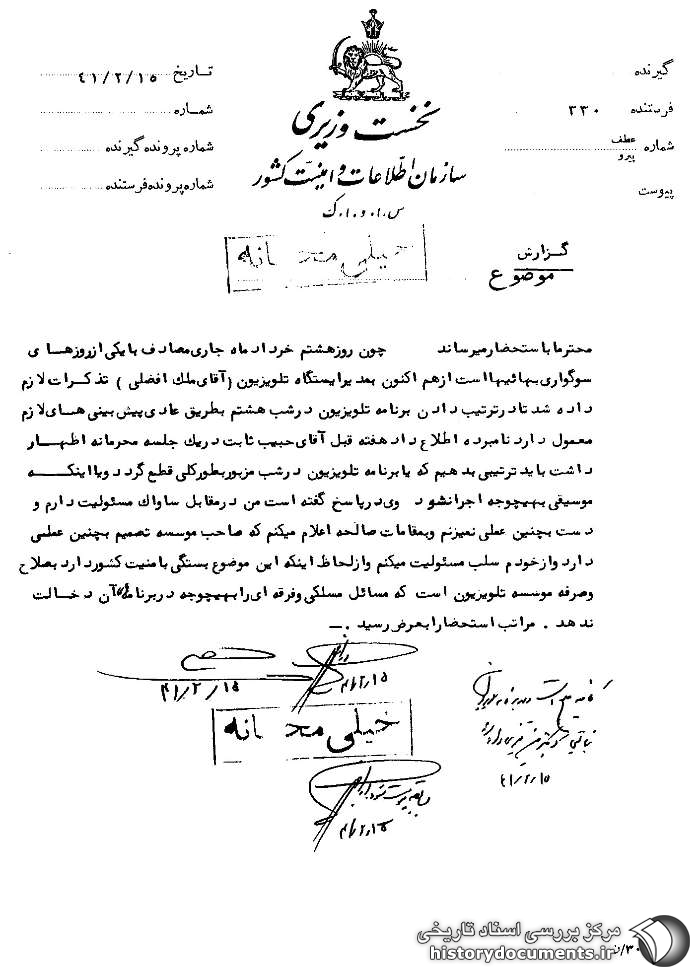 گیرنده
فرستنده ۳۳۰
شماره عطف پیرو
پیوست
نخست وزیری
سازمان اطلاعات و امنیت کشور
س.ا.و.ا.ک
تاریخ ۴۱/۲/۱۵
شماره
شماره پرونده گیرنده
شماره پرونده فرستنده
خیلی محرمانه
گزارش
موضوع
محترما باستحضار میرساند چون روز هشتم خرداد ماه جاری مصادف با یکی از روزهای
سوگواری بهائیها است از هم اکنون بمدیر ایستگاه تلویزیون (آقای ملك افضلی) تذکرات لازم
داده شد تا در ترتیب دادن برنامه تلویزیون در شب هشتم بطریق عادی پیش بینی های لازم
معمول دارد نامبرده اطلاع داد هفته قبل آقای حبیب ثابت در یك جلسه محرمانه اظهار
داشت باید ترتیبی بدهیم که یا برنامه تلویزیون در شب مزبور بطور کلی قطع گردد و یا اینکه
موسیقی بهیچوجه اجرا نشود وی در پاسخ گفته است من در مقابل ساواك مسئولیت دارم و
دست بچنین عملی نمیزنم و بمقامات صالحه اعلام میکنم که صاحب موسسه تصمیم بچنین عملی
دارد و از خودم سلب مسئولیت میکنم و از لحاظ اینکه این موضوع بستگی با منیت کشور دارد بصلاح
و صرفه موسسه تلویزیون است که مسائل مسلکی و فرقه ای را بهیچوجه در برنامه آن دخالت
ندهد. مراتب استحضارا بعرض رسید.
۴۱/۲/۱۵
۴۱/۲/۱۵
خیلی محرمانه
۴۱/۲/۱۵
۴۱/۲/۱۵
مرکز بررسی اسناد تاریخی
historydocuments.ir